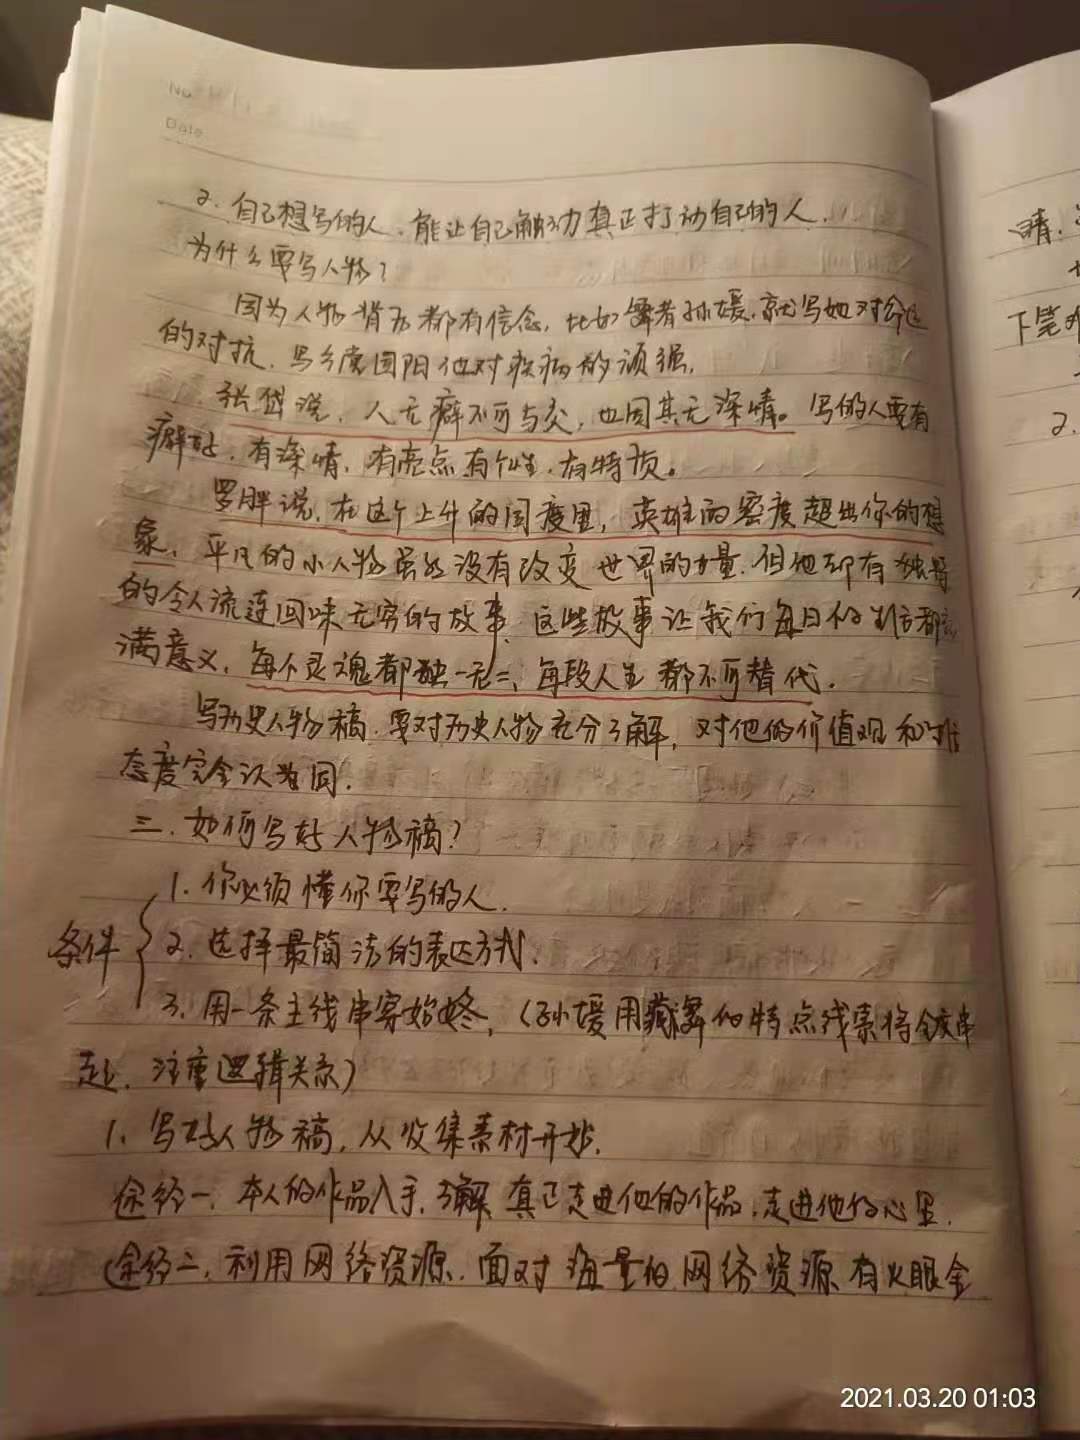 No
Date
2. 自己想写的人, 能让自己触动真正打动自己的人.
为什么要写人物?
因为人物背后都有信念, 比如舞者孙媛, 就写她对命运
的对抗, 写乡度国阳他对疾病的顽强.
张岱说, 人无癖不可与交, 也因其无深情。写的人要有
癖好, 有深情, 有亮点有个性, 有特质。
罗胖说, 在这个上升的国度里, 英雄的密度超出你的想
象, 平凡的小人物虽然没有改变世界的力量, 但他却有独特
的令人流连回味无穷的故事, 这些故事让我们每日的生活都充
满意义, 每个灵魂都独一无二, 每段人生都不可替代.
写历史人物稿, 要对历史人物充分了解, 对他的价值观和
态度完全认为同.
三. 如何写好人物稿?
1. 你必须懂你要写的人.
条件 2. 选择最简洁的表达方式.
3. 用一条主线串穿始终, (孙媛用藏舞的特点线索将全文串
起, 注重逻辑关系)
1. 写好人物稿, 从收集素材开始.
途经一, 本人的作品入手, 了解, 真正走进他的作品, 走进他的心里.
途经二, 利用网络资源, 面对海量的网络资源有火眼金
请,
下笔
2.
2021.03.20 01:03